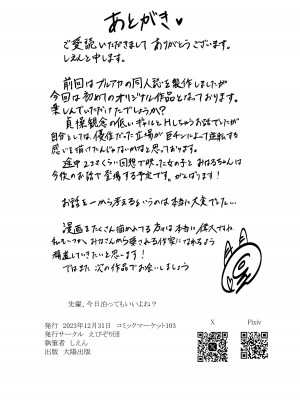 あとがき♥
ご愛読いただきまして ありがとうございます。
しえんと申します。
前回はブルアカの同人誌を製作しましたが
今回は初めてのオリジナル作品となっております。
楽しんでいただけたでしょうか?
貞操観念の低いギャルとHしちゃうお話でしたが
自分としては、優位だった立場が巨チンによって逆転する
感じを描けたんじゃないかなと思っております。
途中2コマくらい回想で映った女の子と おねえちゃんは
今後のお話で登場する予定です。がんばります!
お話を一から考えるというのは本当に大変でした…
漫画をたくさん描かれてる方々は本当に偉大だね
私もいつか、みなさんから愛される作家になれるよう
精進していきたいと思います!
ではまた 次の作品でお会いしましょう
先輩、今日泊ってもいいよね?
発行 2023年12月31日 コミックマーケット103
発行サークル えびぞり団
執筆者 しえん
出版 太陽出版
X
Pixiv